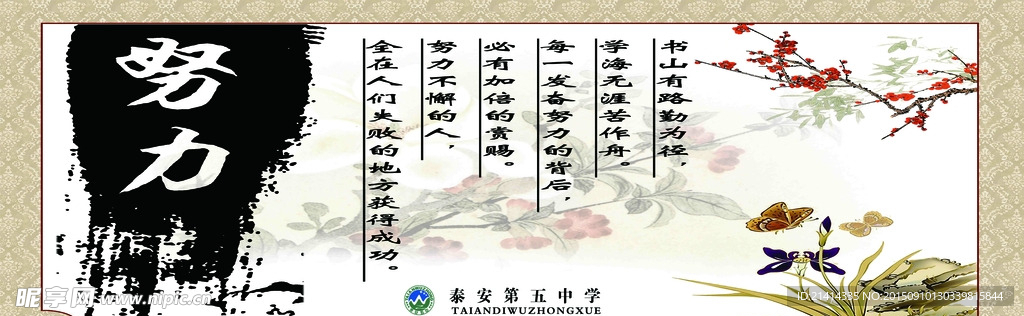 努力
书山有路勤为径，
学海无涯苦作舟。
每一发奋努力的背后，
必有加倍的赏赐。
努力不懈的人，
全在人们失败的地方获得成功。
泰安第五中学
TAIANDIWUZHONGXUE
昵享网 www.nipic.cn
ID:21414335 NO:20150910130339815844